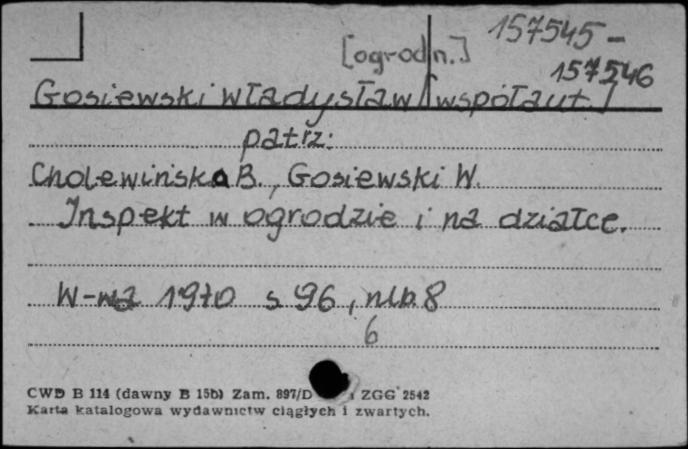 157545-
[ogrodn.]
157546
Gosiewski Władysław [współaut.]
patrz:
Cholewińska B., Gosiewski W.
Inspekt w ogrodzie i na działce.
W-wa 1970 s 96, nlb. 8
6
CWD B 114 (dawny B 15b) Zam. 897/D ZGG 2542
Karta katalogowa wydawnictw ciągłych i zwartych.